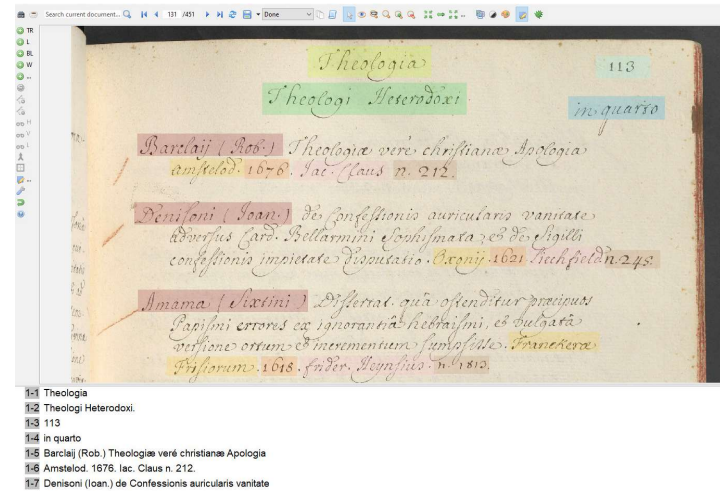 Search current document...
131 /451
Done
TR
L
BL
W
...
H
V
L
...
Theologia
113
Theologi Heterodoxi.
in quarto
Barclaij (Rob.) Theologiæ veré christianæ Apologia
Amstelod. 1676. Iac. Claus n. 212.
Denisoni (Ioan.) de Confessionis auricularis vanitate
adversus Card. Bellarmini Sophismata; et de Sigilli
confessionis impietate Disputatio. Oxonij. 1621 Liechfield n. 245.
Amama (Sixtini) Dissertat. quâ ostenditur præcipuos
Papismi errores ex ignorantiâ hebraismi, et vulgatâ
versione ortum et incrementum sumpsisse. Franekeræ
Frisiorum. 1618. frider. Heynsius. n. 1813.
1-1 Theologia
1-2 Theologi Heterodoxi.
1-3 113
1-4 in quarto
1-5 Barclaij (Rob.) Theologiæ veré christianæ Apologia
1-6 Amstelod. 1676. Iac. Claus n. 212.
1-7 Denisoni (Ioan.) de Confessionis auricularis vanitate